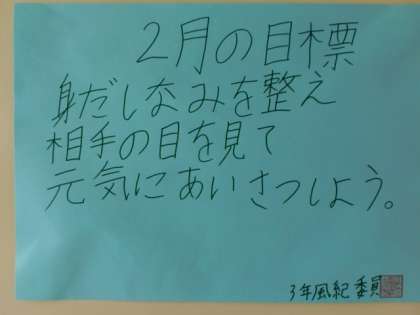 2月の目標
身だしなみを整え
相手の目を見て
元気にあいさつしよう。
3年風紀委員